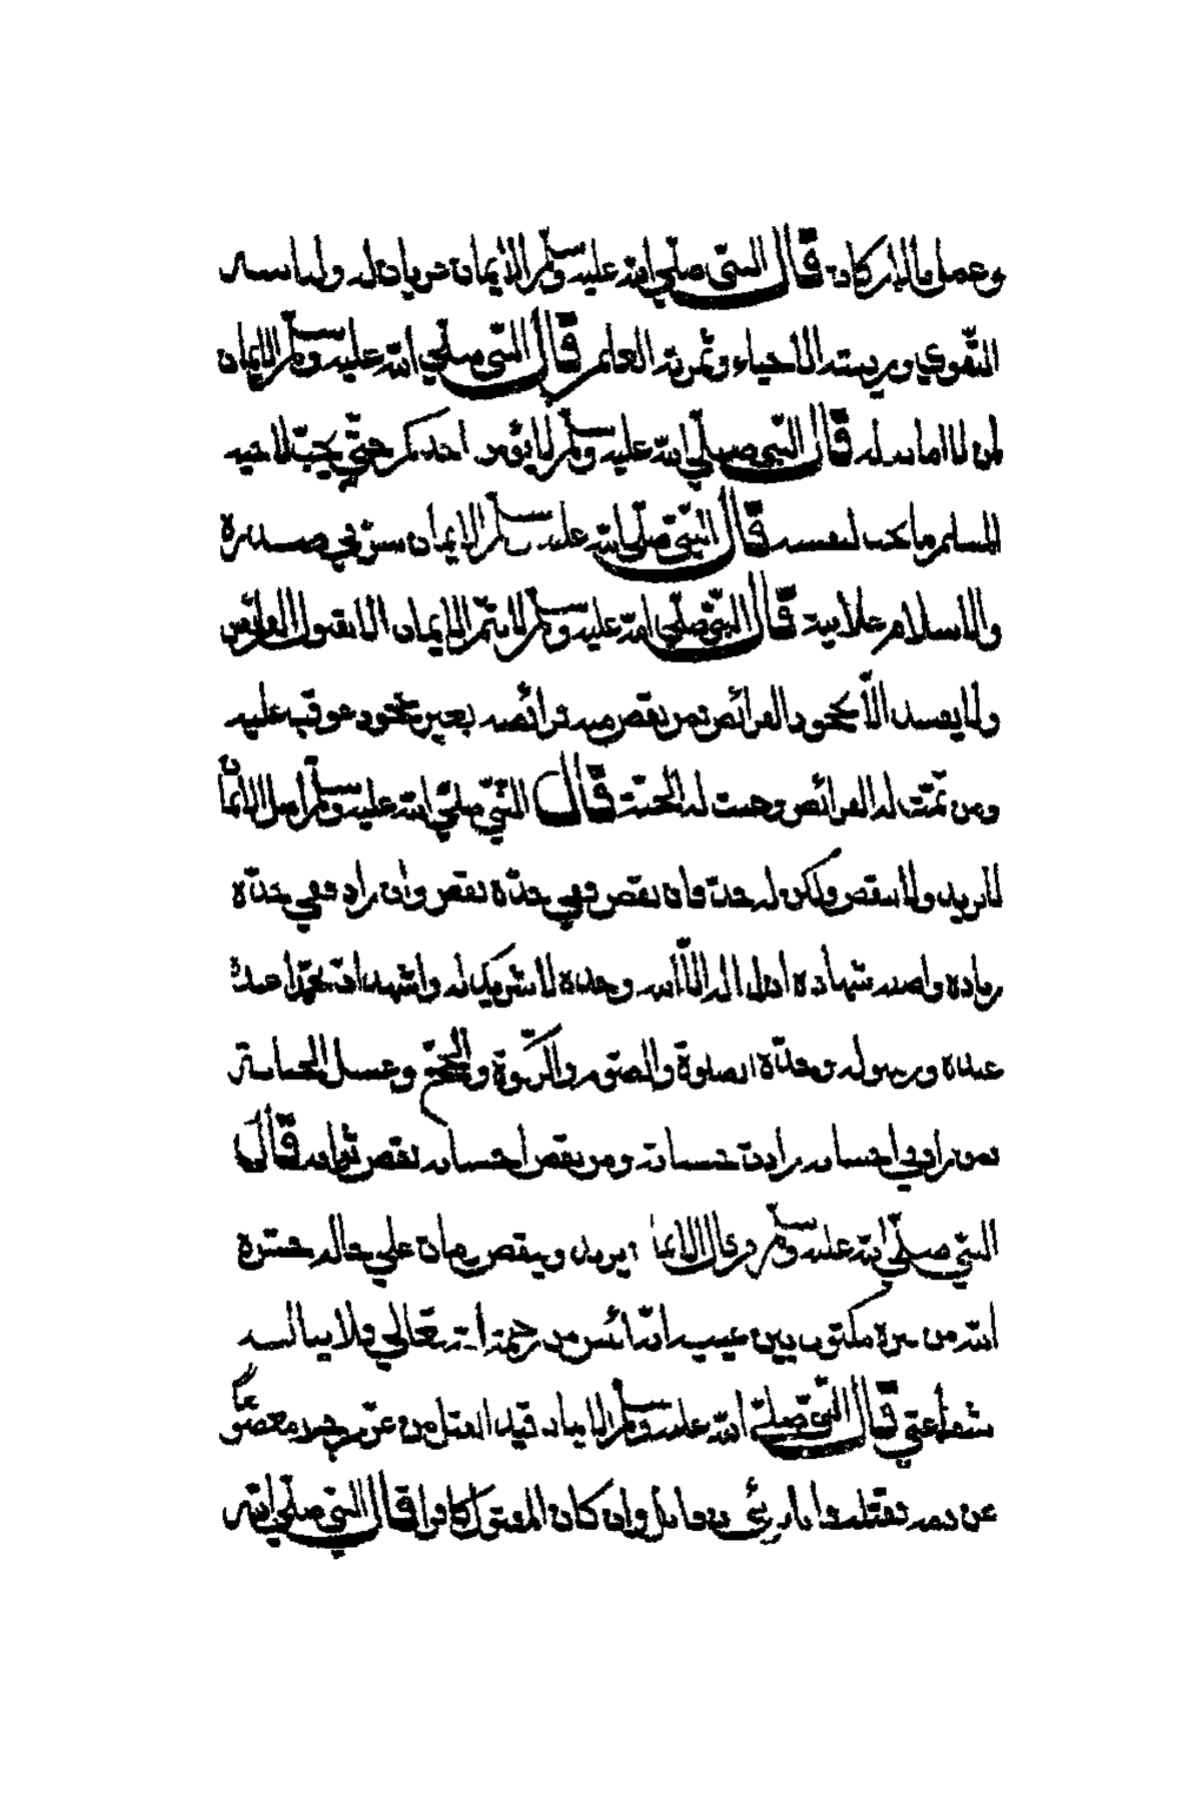 وعمل بالاركان قال النبي صلي الله عليه وسلم الايمان عريان له ولباسه
التقوي وريسته الاحياء وثمرته العلم قال النبي صلي الله عليه وسلم الايمان
لمن لا امانه له قال النبي صلي الله عليه وسلم لا يؤمن احدكم حتي يحب لاخيه
المسلم ما يحب لنفسه قال النبي صلي الله عليه وسلم الايمان سر في صدره
والاسلام علانية قال النبي صلي الله عليه وسلم لا يتم الايمان الا بقبول الفرائض
ولا يفسد الا بجحود الفرائض فمن نقص من فرائضه بغير جحود عوقب عليه
ومن تمت له الفرائض وجبت له الجنة قال النبي صلي الله عليه وسلم اصل الايمان
لا يزيد ولا ينقص ولكن له حد فان نقص ففي حده نقص وان زاد ففي حده
زياده واصله شهاده ان لا اله الا الله وحده لا شريك له واشهد ان محمدا عبده
عبده ورسوله وحده الصلوة والصوم والزكوة والحج وغسل الجنابة
فمن زاد في احسانه زادت حسناته ومن نقص احسانه نقص ثوابه قال
النبي صلي الله عليه وسلم من قال الايمان يزيد وينقص فمات علي حاله حشره
الله من مكتوب بين عينيه ائس من رحمة الله تعالي فلا يناله
شفاعتي قال النبي صلي الله عليه وسلم الايمان قيد القتل من عن
عن دمه فقتله فانا برئي من قاتل وان كان المقتول كافرا قال النبي صلي الله